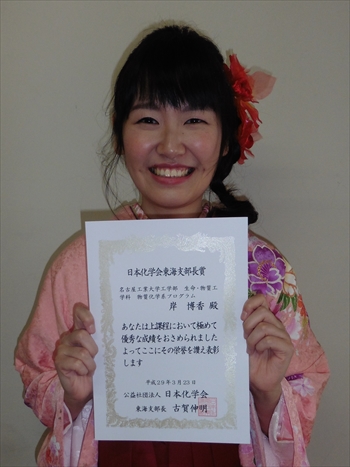 日本化学会東海支部長賞
名古屋工業大学工学部 生命・物質工
学科 物質化学系プログラム
岸 博香 殿
あなたは上課程において極めて
優秀な成績をおさめられました
よってここにその栄誉を讃え表彰
します
平成29年3月23日
公益社団法人 日本化学会
東海支部長 古賀伸明